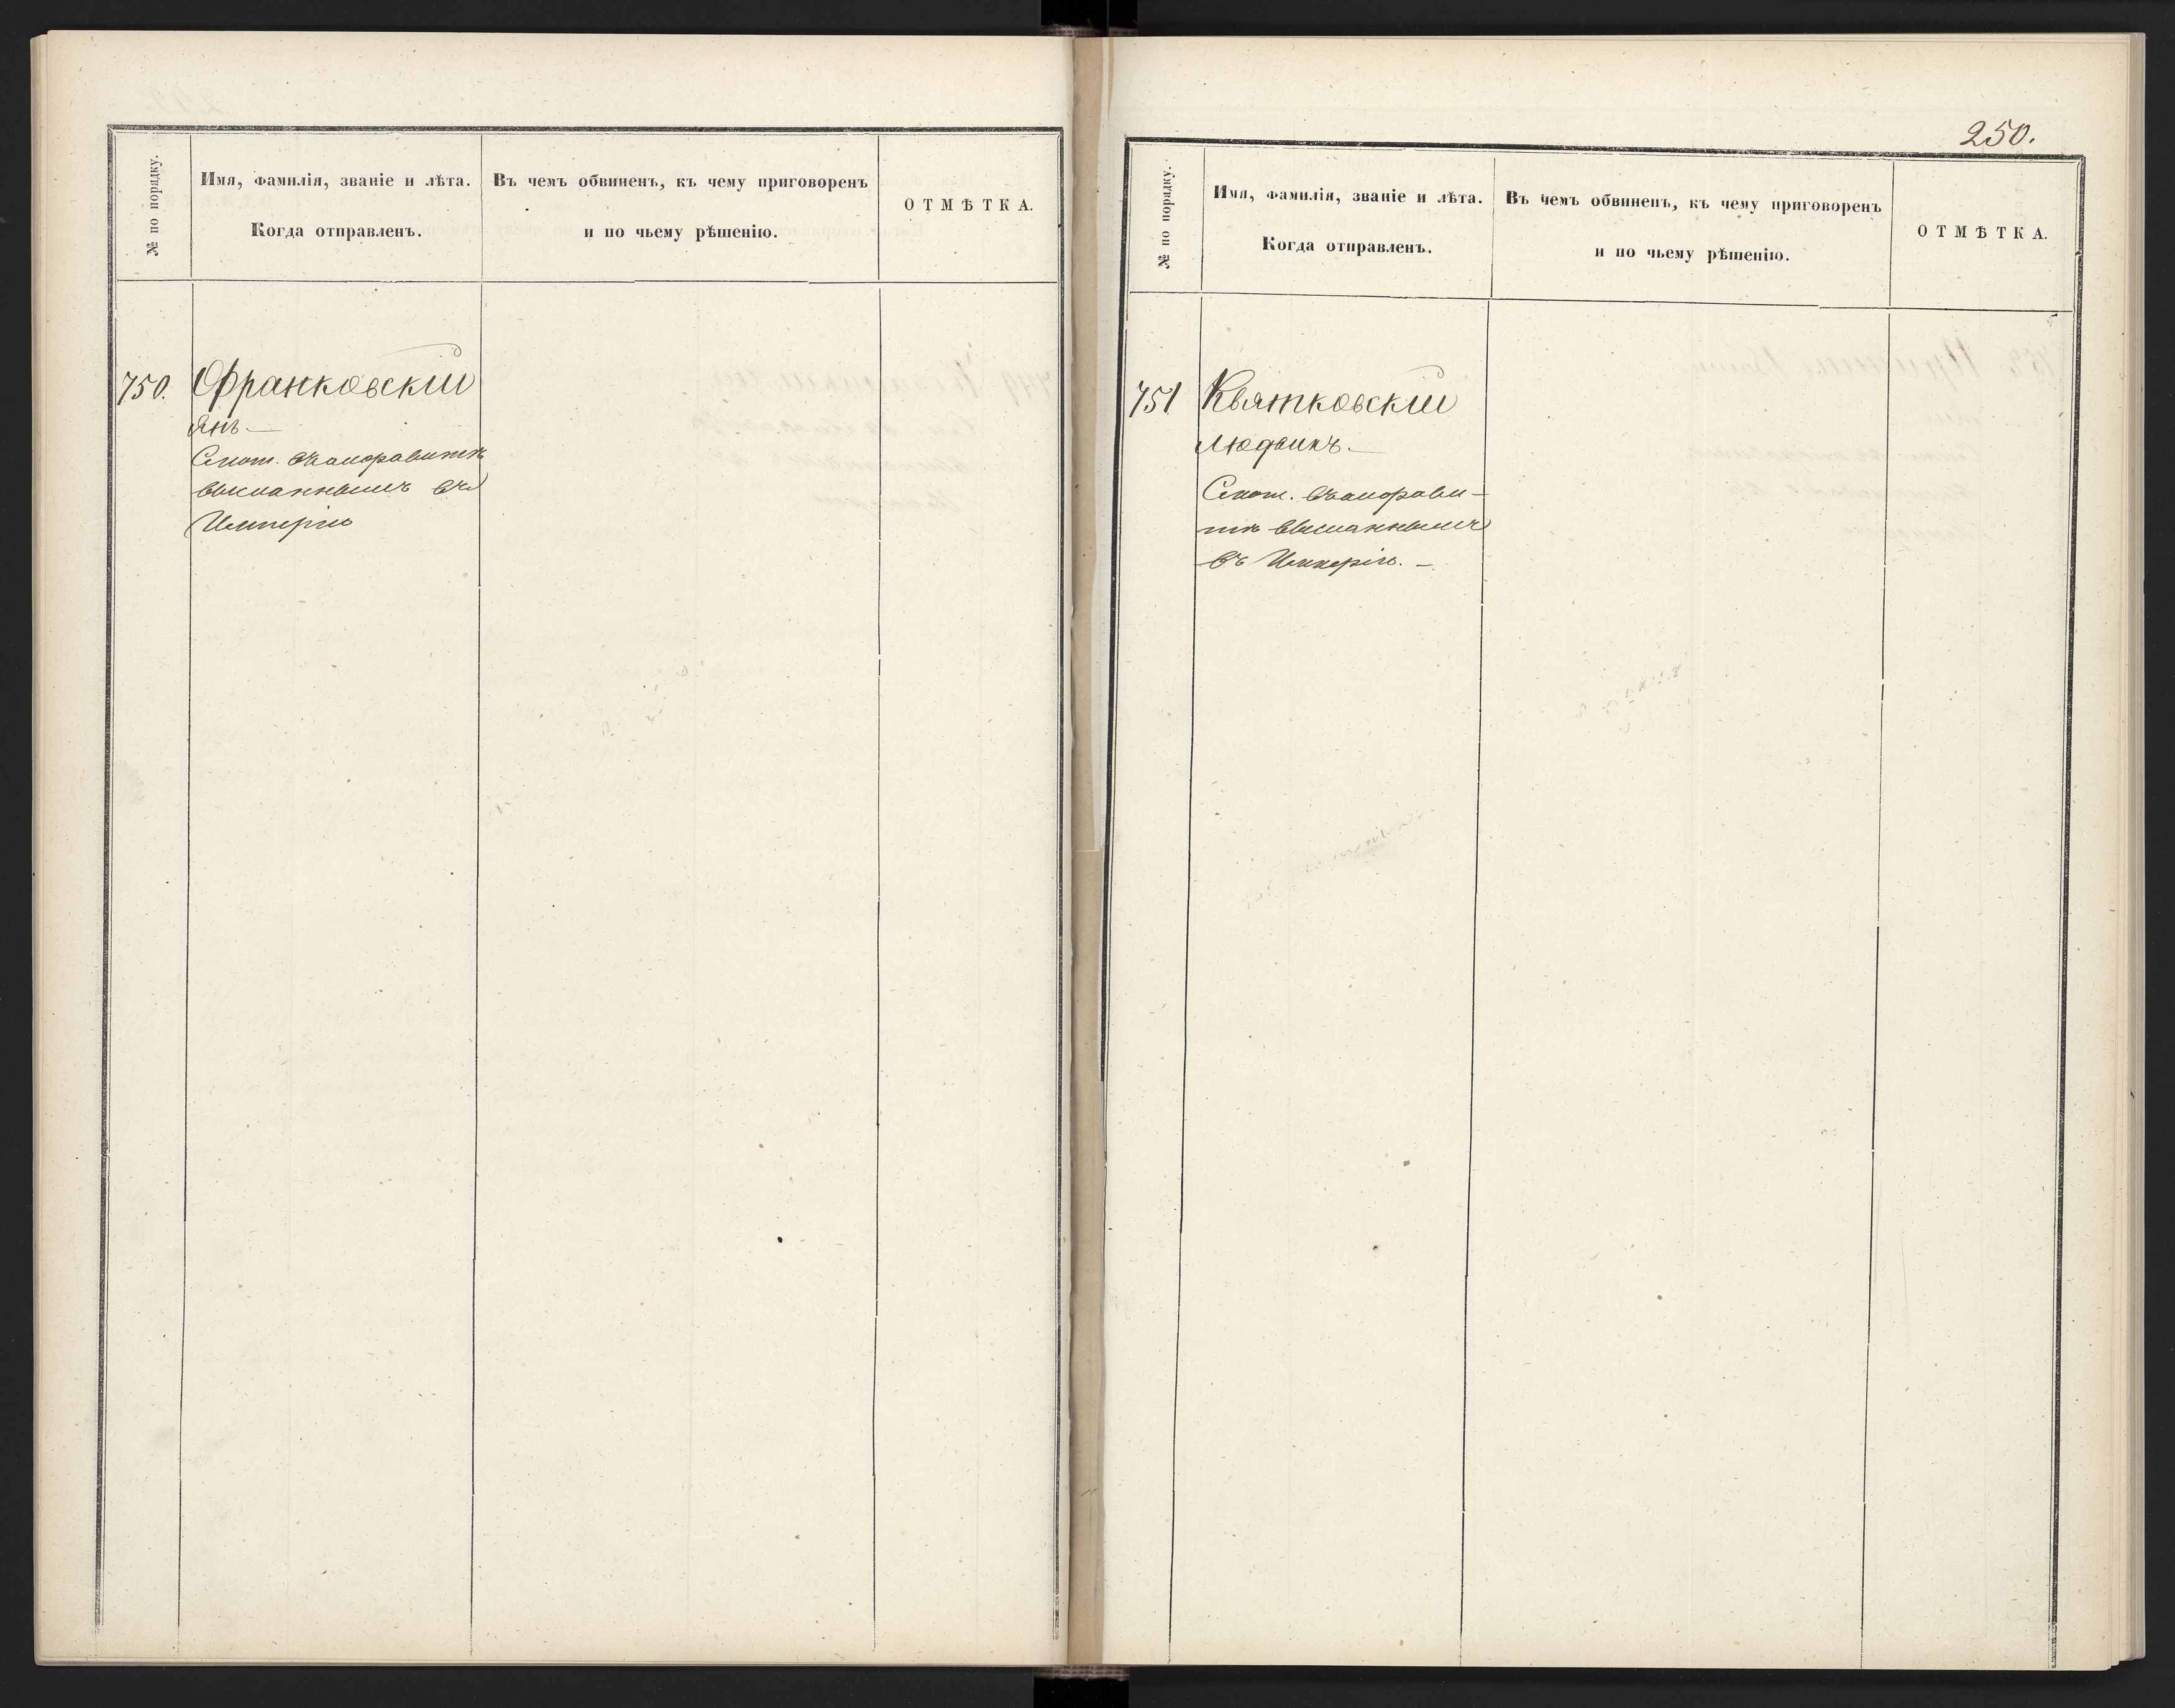 № по порядку.
Имя, фамилія, званіе и лѣта.
Когда отправленъ.
Въ чемъ обвиненъ, къ чему приговоренъ
и по чьему рѣшенію.
ОТМѢТКА.
750.
Франковскій
Янъ. —
Смот. въ алфавитѣ
высланнымъ въ
Имперію
250.
№ по порядку.
Имя, фамилія, званіе и лѣта.
Когда отправленъ.
Въ чемъ обвиненъ, къ чему приговоренъ
и по чьему рѣшенію.
ОТМѢТКА.
751
Квятковскій
Людвикъ. —
Смот. въ алфави-
тѣ высланнымъ
въ Имперію. —